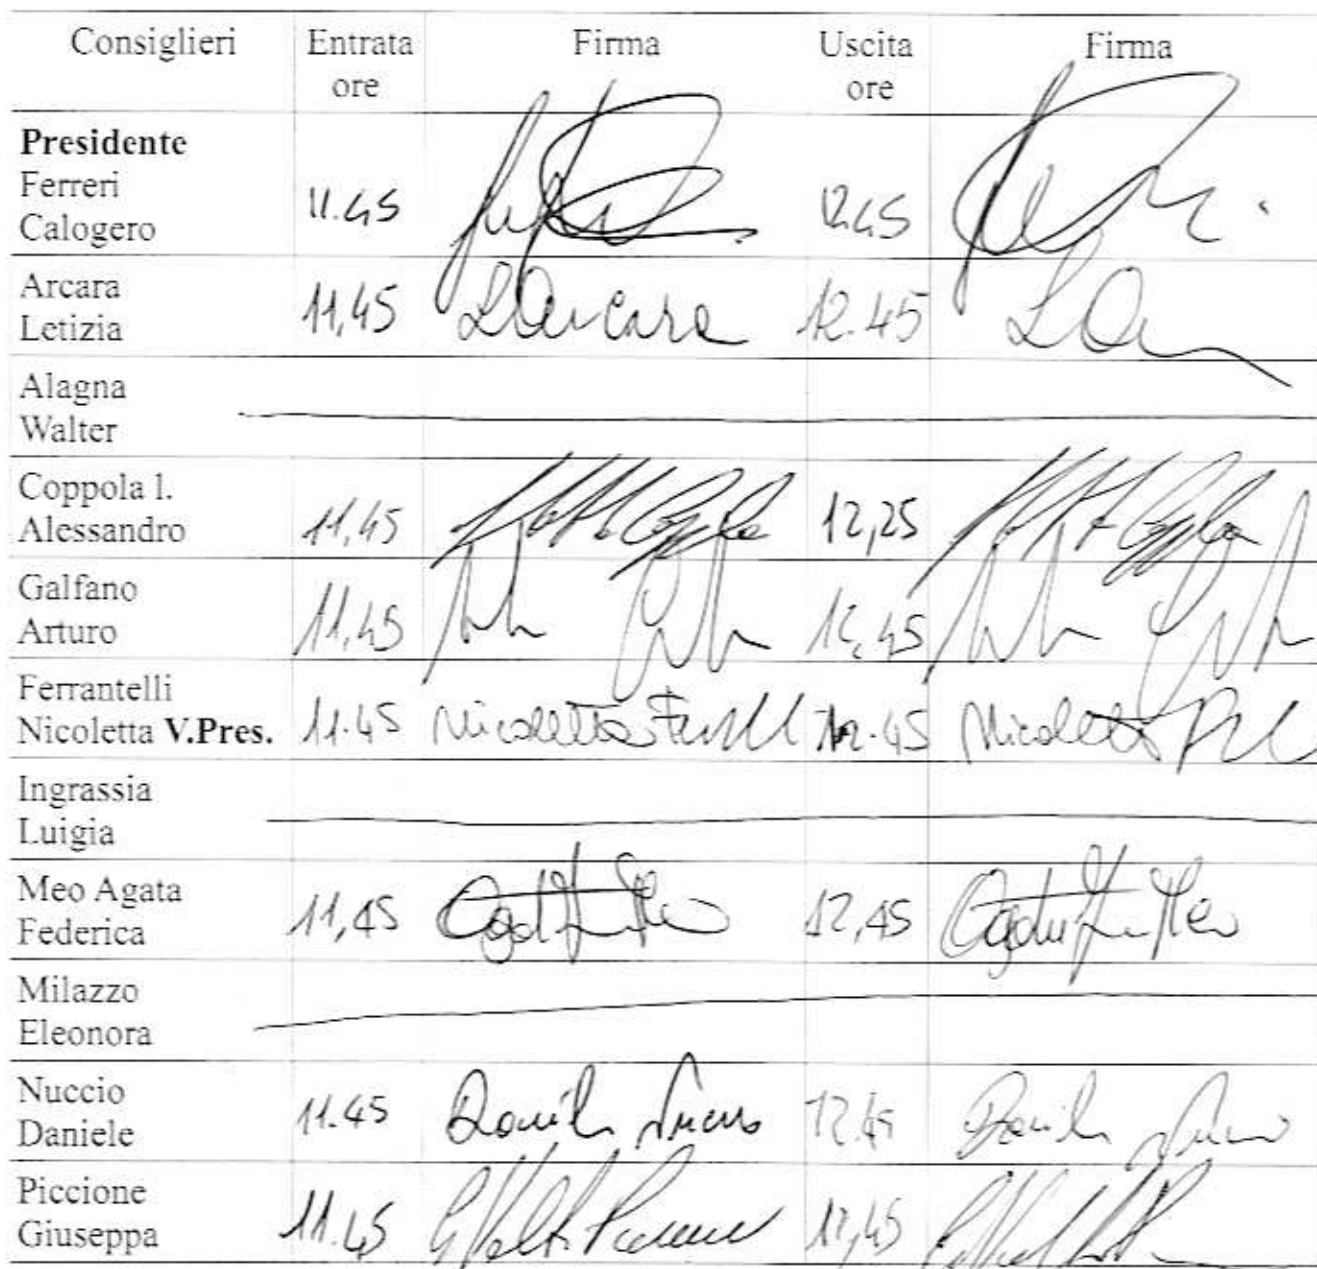 Consiglieri Entrata ore Firma Uscita ore Firma
Presidente
Ferreri
Calogero 11.45 12.45
Arcara
Letizia 11,45 L Arcara 12.45
Alagna
Walter
Coppola l.
Alessandro 11,45 12,25
Galfano
Arturo 11,45 12,45
Ferrantelli
Nicoletta V.Pres. 11.45 Nicoletta 12.45 Nicoletta
Ingrassia
Luigia
Meo Agata
Federica 11,45 12,45
Milazzo
Eleonora
Nuccio
Daniele 11.45 12.45
Piccione
Giuseppa 11.45 12,45